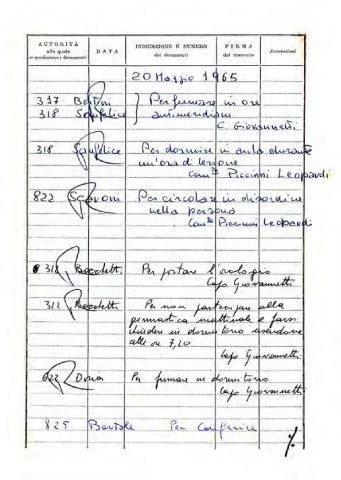 AUTORITÀ
alla quale
si spediscono i documenti
DATA
INDICAZIONE E NUMERO
dei documenti
FIRMA
del ricevente
Annotazioni
20 Marzo 1965
317 Bertoni Per fumare in ore
318 Sanfelice antimeridiane
C. Giovannetti
318 Sanfelice Per dormire in aula durante
un'ora di lezione
Piccinni Leopardi
822 Per circolare in disordine
nella persona
Piccinni Leopardi
312 Bocchetti Per portare l'orologio
Capo Giovannetti
312 Bocchetti Per non partecipare alla
ginnastica mattinale e farsi
chiudere in dormitorio uscendone
alle ore 7,20
Capo Giovannetti
622 Per fumare in dormitorio
Capo Giovannetti
825 Bartole Per